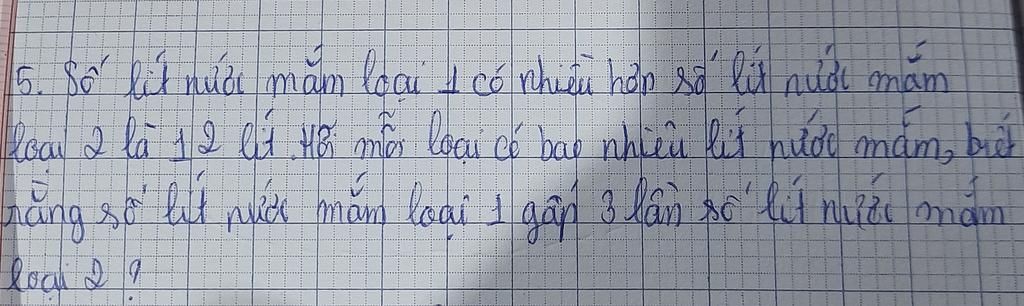 5. Số lít nước mắm loại 1 có nhiều hơn số lít nước mắm
loại 2 là 12 lít. Hỏi mỗi loại có bao nhiêu lít nước mắm, biết
rằng số lít nước mắm loại 1 gấp 3 lần số lít nước mắm
loại 2 ?